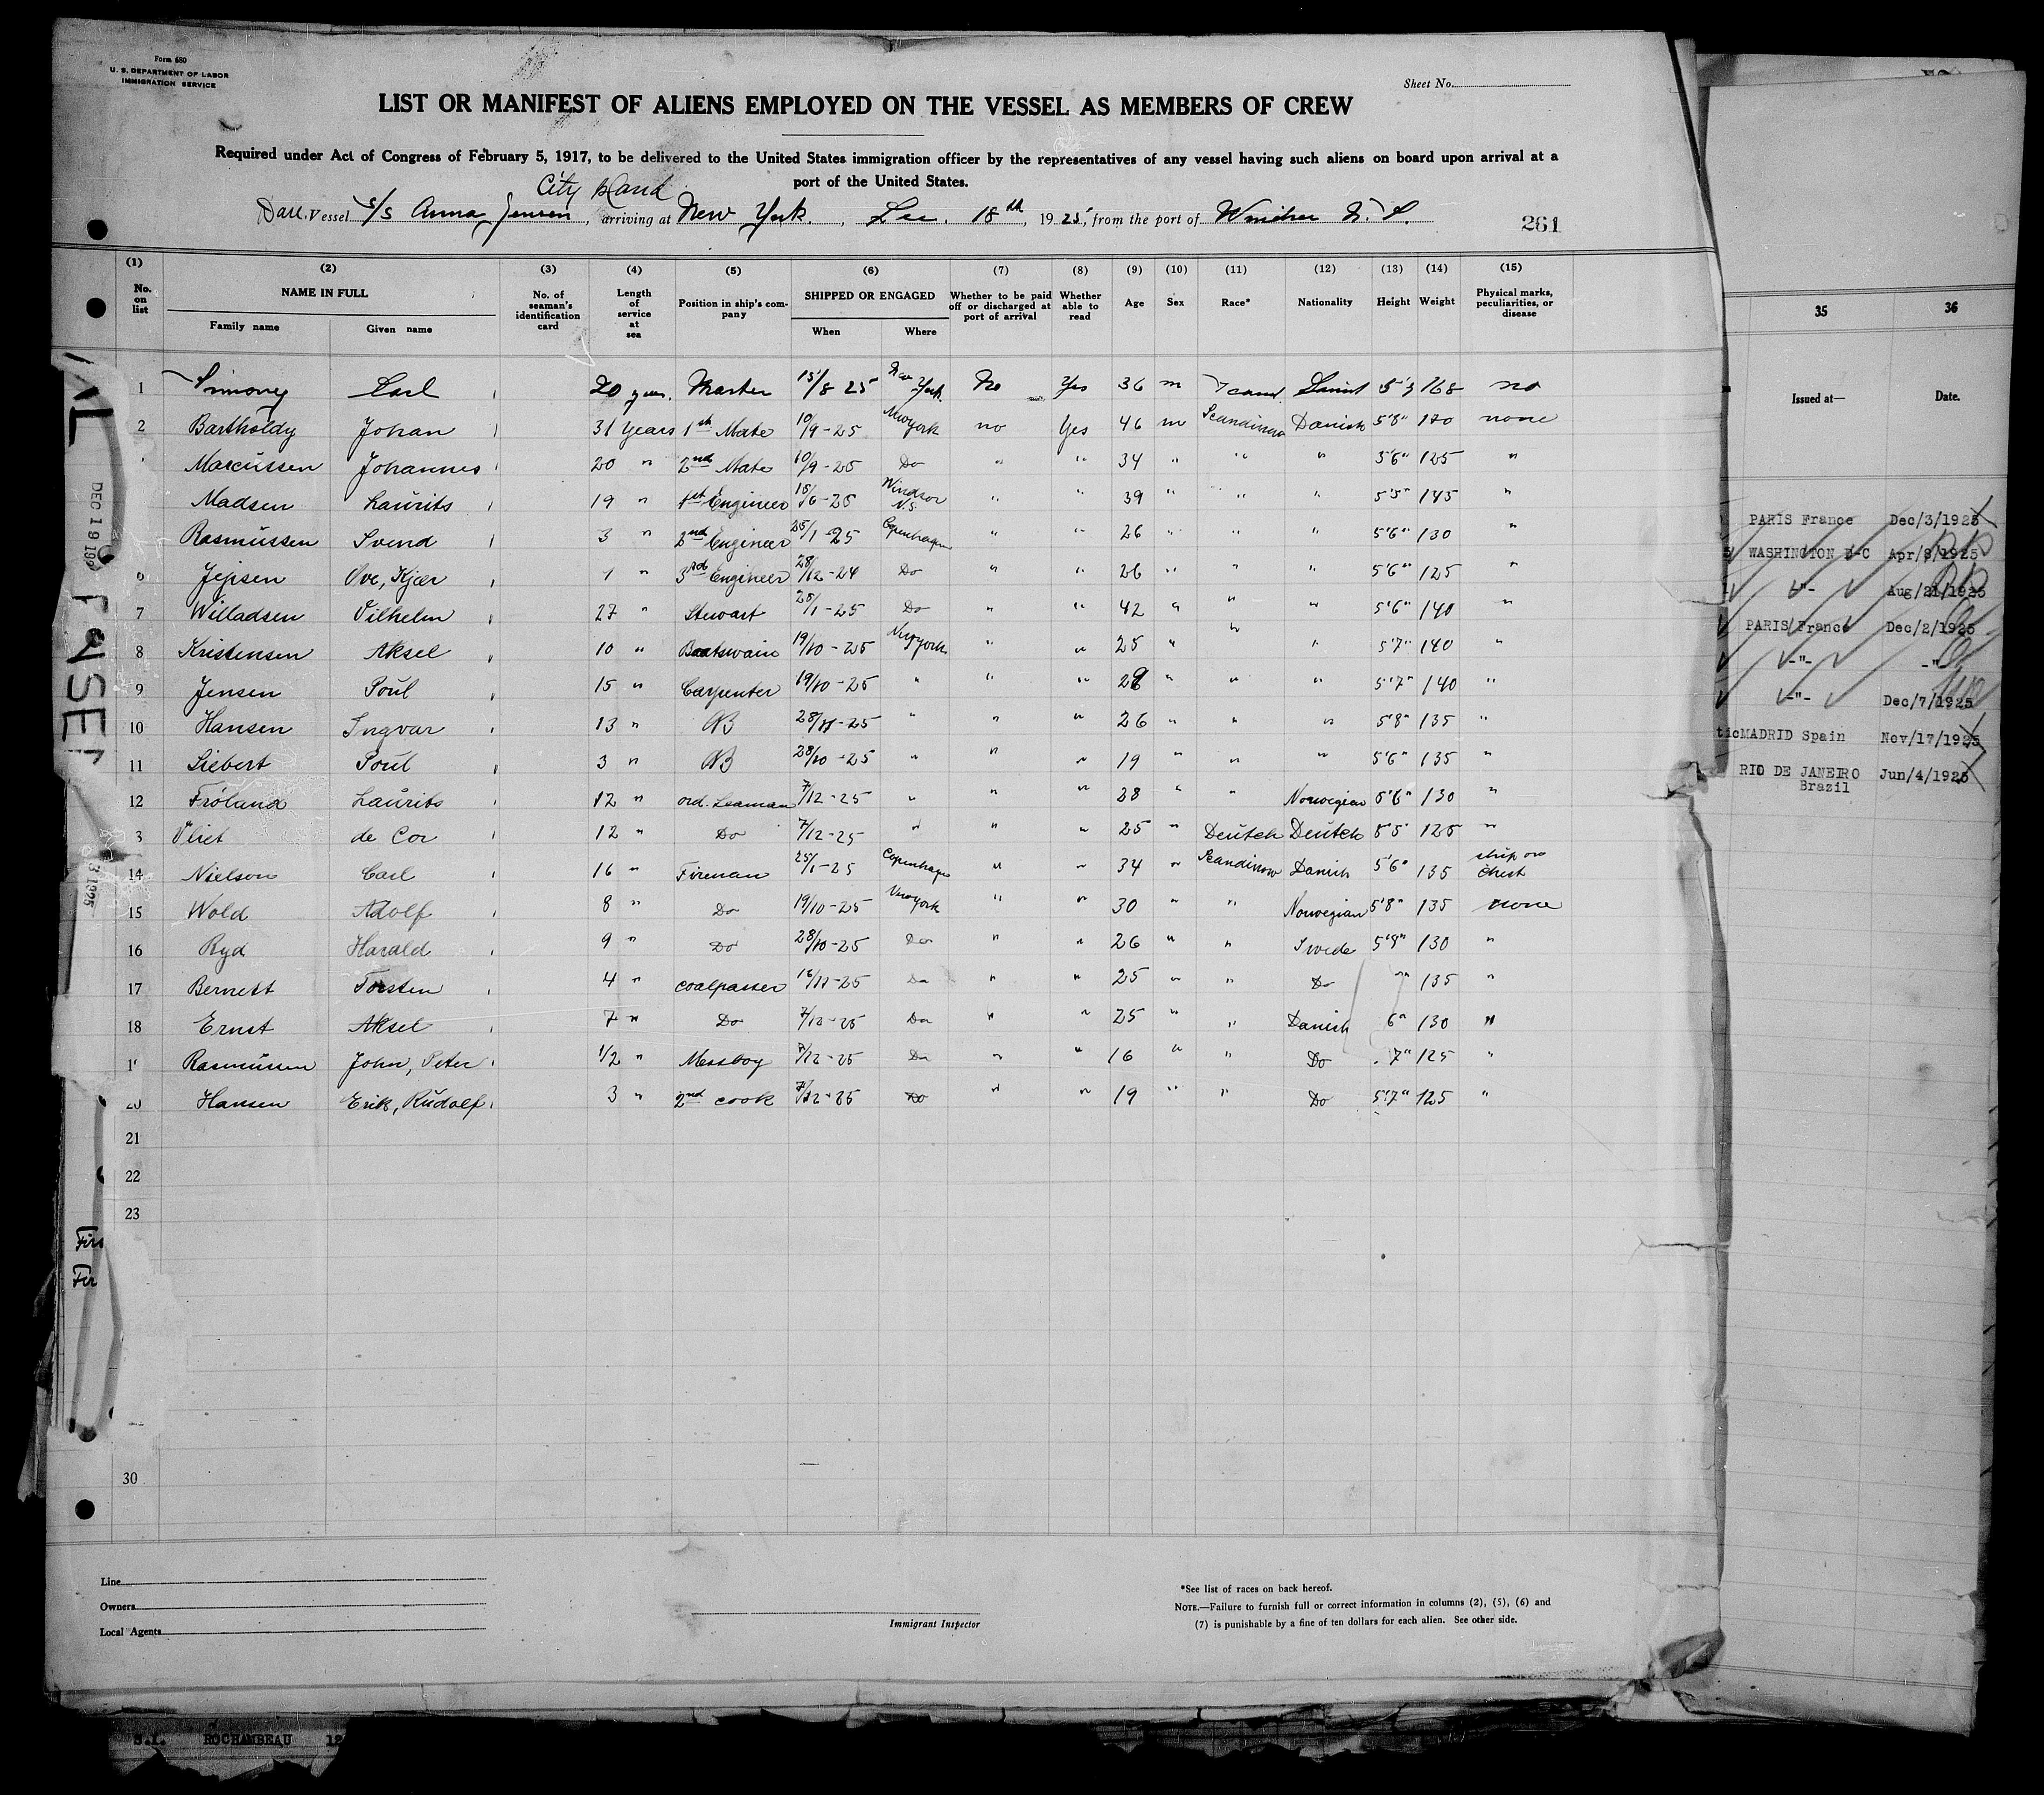 Form 680
U. S. DEPARTMENT OF LABOR
IMMIGRATION SERVICE
Sheet No.
LIST OR MANIFEST OF ALIENS EMPLOYED ON THE VESSEL AS MEMBERS OF CREW
Required under Act of Congress of February 5, 1917, to be delivered to the United States immigration officer by the representatives of any vessel having such aliens on board upon arrival at a
port of the United States.
City Island
Vessel s/s Anna Jensen, arriving at New York, Dec. 18th, 1925, from the port of N. S.
261
(1) (2) (3) (4) (5) (6) (7) (8) (9) (10) (11) (12) (13) (14) (15)
No. on list
NAME IN FULL
Family name Given name
No. of seaman's identification card
Length of service at sea
Position in ship's company
SHIPPED OR ENGAGED
When Where
Whether to be paid off or discharged at port of arrival
Whether able to read
Age Sex Race* Nationality Height Weight
Physical marks, peculiarities, or disease
1 Carl 20 years. Master 15/8 25 New York. No Yes 36 m Scand. Danish 168 no
2 Bartholdy Johan 31 Years 1st Mate 10/9-25 Newyork no Yes 46 m Danish 5'8" 170 none
Marcussen Johannes 20 " 2nd Mate 10/9-25 Do " " 34 " " " 5'6" 125 "
Madsen Laurits 19 " 1st Engineer Windsor N.S. " " 39 " " " 5'5" 145 "
Rasmussen Svend 3 " 2nd Engineer 25/1-25 Copenhagen " " 26 " " " 5'6" 130 "
6 Jepsen Ove, Kjær 1 " 3rd Engineer 28/12-24 Do " " 26 " " " 5'6" 125 "
7 Willadsen Vilhelm 27 " Stewart 25/1-25 Do " " 42 " " " 5'6" 140 "
8 Kristensen Aksel 10 " Boatswain 19/10-25 Newyork " " 25 " " " 5'7" 140 "
9 Jensen Poul 15 " Carpenter 19/10-25 " " " " " " 5'7" 140 "
10 Hansen Ingvar 13 " AB " " " 26 " " " 5'8" 135 "
11 Siebert Poul 3 " AB 28/10-25 " " " 19 " " " 5'6" 135 "
12 Fröland Laurits 12 " ord. Seaman 7/12-25 " " " 28 " " Norwegian 5'6" 130 "
3 Vliet de Cor 12 " Do 7/12-25 " " " 25 " Deutch Deutch 5'5 125 "
14 Nielson Carl 16 " Fireman 25/1-25 Copenhagen " " 34 " Danish 5'6" 135 chest
15 Wold Adolf 8 " Do 19/10-25 Newyork " " 30 " " Norwegian 5'8" 135 none
16 Ryd Harald 9 " Do 28/10-25 Do " " 26 " " Swede 5'9" 130 "
17 Bernett Torsten 4 " coalpasser 16/11-25 Do " " 25 " " Do 135 "
18 Ernst Aksel 7 " Do 7/12-25 Do " " 25 " " Danish 6" 130 "
1 Rasmussen John, Peter 1/2 " Messboy 7/12-25 Do " " 16 " " Do 7" 125 "
20 Hansen Erik, Rudolf 3 " 2nd cook 7/12-25 Do " " 19 " " Do 5'7" 125 "
21
22
23
30
Line
Owners
Local Agents
Immigrant Inspector
*See list of races on back hereof.
NOTE.—Failure to furnish full or correct information in columns (2), (5), (6) and
(7) is punishable by a fine of ten dollars for each alien. See other side.
35 36
Issued at— Date.
PARIS France Dec/3/1925
WASHINGTON D-C Apr/8/1925
-"- Aug/21/1925
PARIS France Dec/2/1925
-"- -"-
-"- Dec/7/1925
MADRID Spain Nov/17/1925
RIO DE JANEIRO Jun/4/1925
Brazil
S.I. ROCHAMBEAU 12